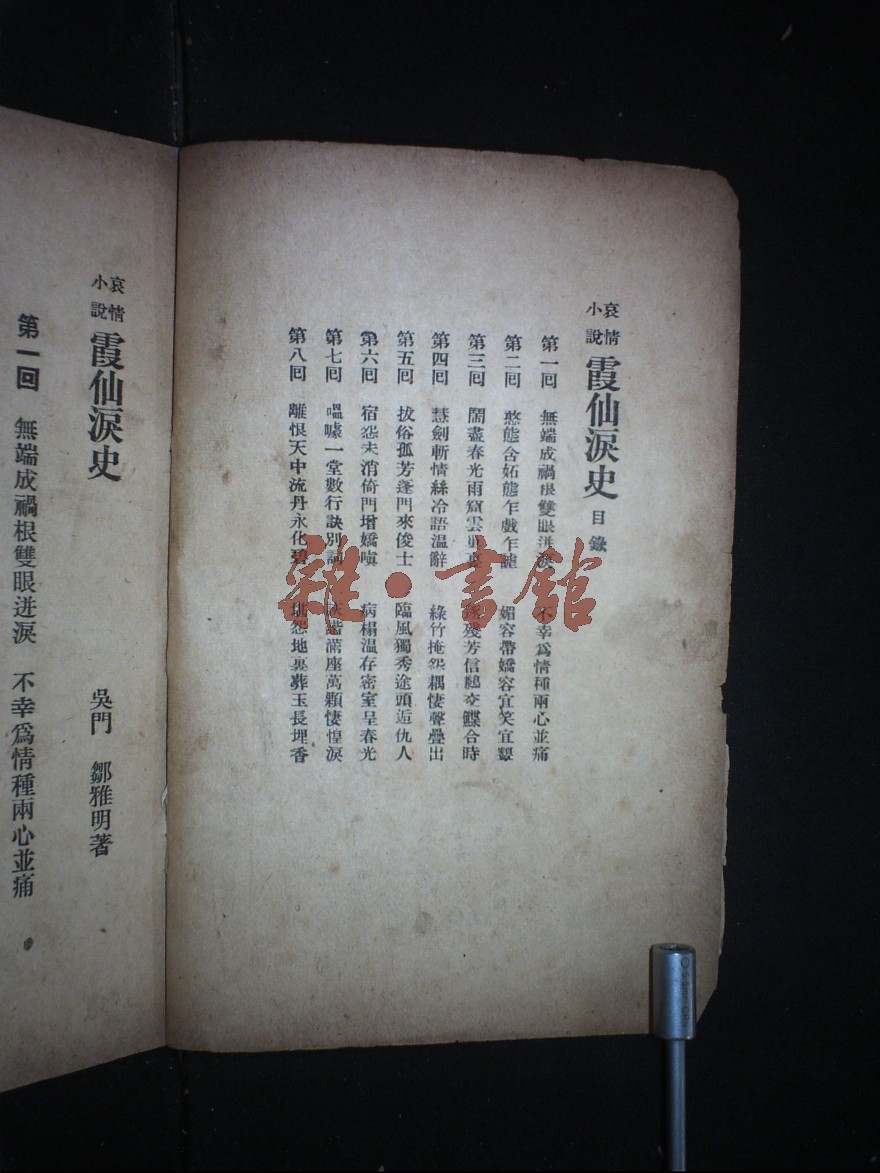 哀情小說 霞仙淚史 目錄
第一回 無端成禍根雙眼迸淚 不幸爲情種兩心並痛
第二回 憨態含妬態乍戲乍謔 媚容帶嬌容宜笑宜顰
第三回 鬧盡春光雨窺雲 殘芳信鶼交鰈合時
第四回 慧劍斬情絲冷語温辭 綠竹掩怨耦悽聲疊出
第五回 拔俗孤芳蓬門來俊士 臨風獨秀途頭逅仇人
第六回 宿怨未消倚門增嬌嗔 病榻温存密室呈春光
第七回 嗢噱一堂數行訣別詞 滿座萬顆悽惶淚
第八回 離恨天中流丹永化碧 怨地裏葬玉長埋香
雜·書館
哀情小說 霞仙淚史
吳門 鄒雅明著
第一回 無端成禍根雙眼迸淚 不幸爲情種兩心並痛